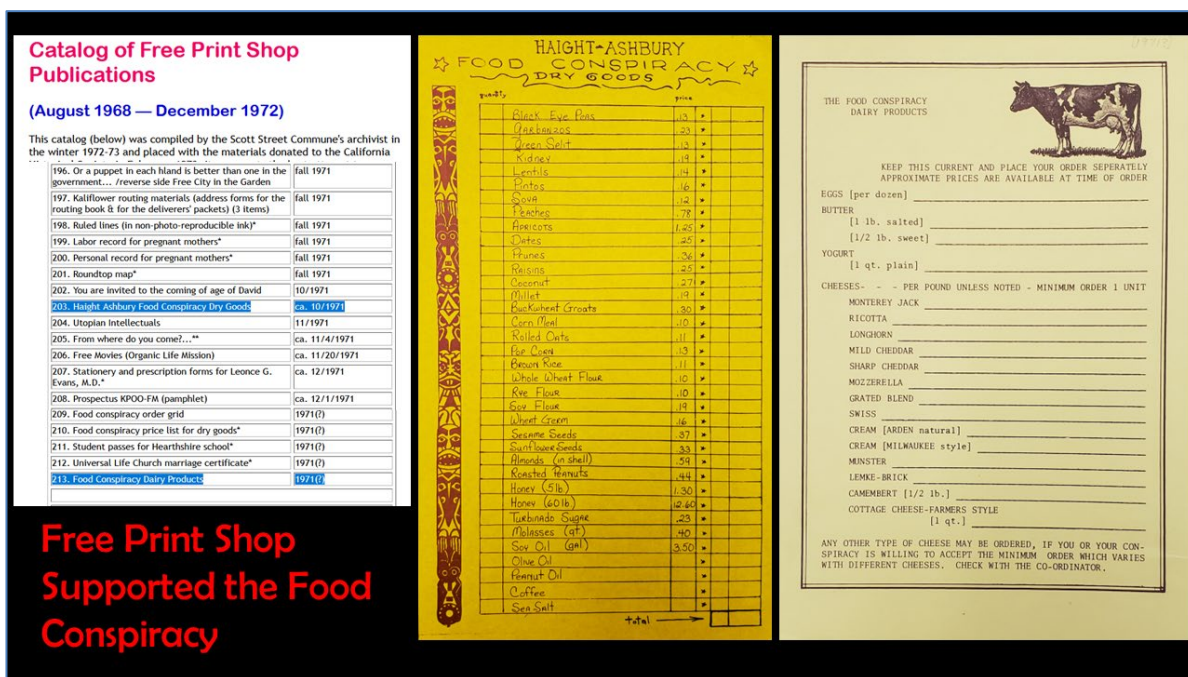 Catalog of Free Print Shop
Publications
(August 1968 — December 1972)
This catalog (below) was compiled by the Scott Street Commune's archivist in
the winter 1972-73 and placed with the materials donated to the California
196. Or a puppet in each hland is better than one in the fall 1971
government... /reverse side Free City in the Garden
197. Kaliflower routing materials (address forms for the fall 1971
routing book & for the deliverers' packets) (3 items)
198. Ruled lines (in non-photo-reproducible ink)* fall 1971
199. Labor record for pregnant mothers* fall 1971
200. Personal record for pregnant mothers* fall 1971
201. Roundtop map* fall 1971
202. You are invited to the coming of age of David 10/1971
203. Haight Ashbury Food Conspiracy Dry Goods ca. 10/1971
204. Utopian Intellectuals 11/1971
205. From where do you come?...** ca. 11/4/1971
206. Free Movies (Organic Life Mission) ca. 11/20/1971
207. Stationery and prescription forms for Leonce G. ca. 12/1971
Evans, M.D.*
208. Prospectus KPOO-FM (pamphlet) ca. 12/1/1971
209. Food conspiracy order grid 1971(?)
210. Food conspiracy price list for dry goods* 1971(?)
211. Student passes for Hearthshire school* 1971(?)
212. Universal Life Church marriage certificate* 1971(?)
213. Food Conspiracy Dairy Products 1971(?)
Free Print Shop
Supported the Food
Conspiracy
HAIGHT-ASHBURY
FOOD CONSPIRACY
DRY GOODS
price
Black Eye Peas .13
GARBANZOS .23
Green Split .13
Kidney .19
Lentils .14
Pintos .16
SOYA .12
Peaches .78
APRICOTS 1.25
Dates .25
Prunes .36
RAISINS .25
Coconut .27
Millet .19
Buckwheat Groats .30
Corn Meal .10
Rolled Oats .11
POP CORN .13
Brown Rice .11
Whole Wheat Flour .10
Rye Flour .10
Soy Flour .19
Wheat Germ .16
Sesame Seeds .37
Sunflower Seeds .33
Almonds (in shell) .59
Roasted Peanuts .44
Honey (5lb) 1.30
Honey (60lb) 12.60
Turbinado Sugar .23
Molasses (qt) .40
Soy Oil (gal) 3.50
Olive Oil
Peanut Oil
Coffee
Sea Salt
total
THE FOOD CONSPIRACY
DAIRY PRODUCTS
KEEP THIS CURRENT AND PLACE YOUR ORDER SEPERATELY
APPROXIMATE PRICES ARE AVAILABLE AT TIME OF ORDER
EGGS [per dozen]
BUTTER
[1 lb. salted]
[1/2 lb. sweet]
YOGURT
[1 qt. plain]
CHEESES- - - PER POUND UNLESS NOTED - MINIMUM ORDER 1 UNIT
MONTEREY JACK
RICOTTA
LONGHORN
MILD CHEDDAR
SHARP CHEDDAR
MOZZERELLA
GRATED BLEND
SWISS
CREAM [ARDEN natural]
CREAM [MILWAUKEE style]
MUNSTER
LEMKE-BRICK
CAMEMBERT [1/2 lb.]
COTTAGE CHEESE-FARMERS STYLE
[1 qt.]
ANY OTHER TYPE OF CHEESE MAY BE ORDERED, IF YOU OR YOUR CON-
SPIRACY IS WILLING TO ACCEPT THE MINIMUM ORDER WHICH VARIES
WITH DIFFERENT CHEESES. CHECK WITH THE CO-ORDINATOR.